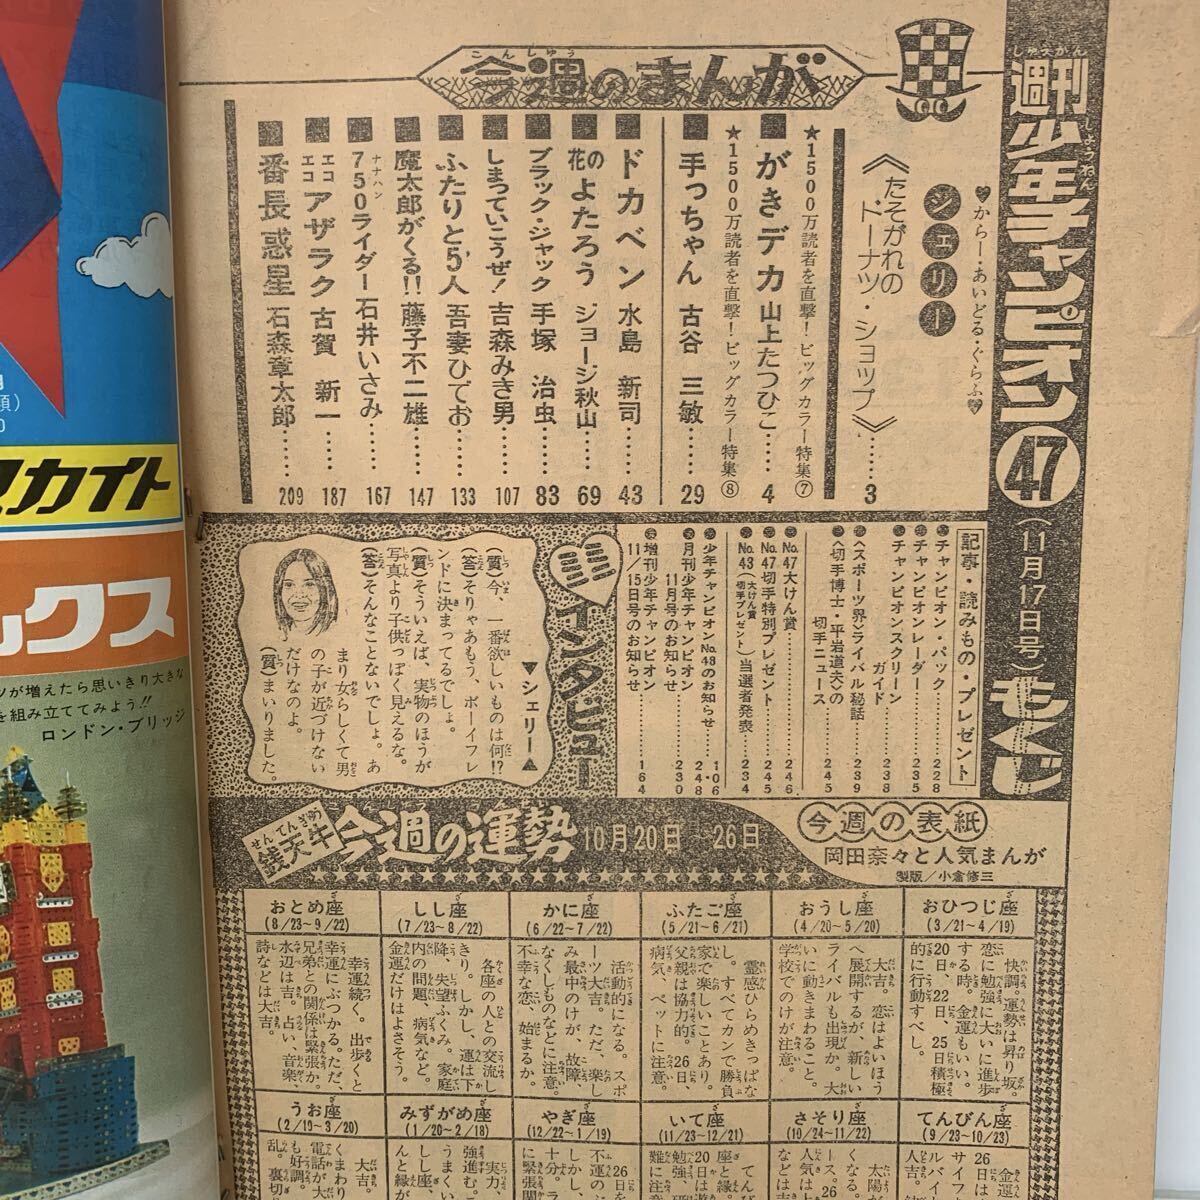 週刊少年チャンピオン㊼(11月17日号)もくじ
しゅうかん
しょうねん
今週のまんが
こんしゅう
♥からー・あいどる・ぐらふ♥
シェリー
《たそがれの
ドーナツ・ショップ》……3
★1500万読者を直撃!ビッグカラー特集⑦
■がきデカ 山上たつひこ……4
★1500万読者を直撃!ビッグカラー特集⑧
■手っちゃん 古谷三敏……29
■ドカベン 水島新司……43
■花のよたろう ジョージ秋山……69
■ブラック・ジャック 手塚治虫……83
■しまっていこうぜ! 吉森みき男……107
■ふたりと5人 吾妻ひでお……133
■魔太郎がくる!! 藤子不二雄……147
■750ライダー 石井いさみ……167
ナナハン
■エコエコアザラク 古賀新一……187
■番長惑星 石森章太郎……209
記事・読みもの・プレゼント
チャンピオン・パック……228
チャンピオンレーダー……235
チャンピオンスクリーン
ガイド……238
〈スポーツ界〉ライバル秘話……239
〈切手博士・平岩道夫〉の
切手ニュース……245
No.47大けん賞……246
No.47切手特別プレゼント……245
No.43(大けん賞
切手プレゼント)当選者発表……234
少年チャンピオンNo.48のお知らせ……106・248
月刊少年チャンピオン
11月号のお知らせ……230
増刊少年チャンピオン
11/15日号のお知らせ……164
ミニミニインタビュー
▼シェリー▲
(質)今、一番欲しいものは何!?
(答)そりゃあもう、ボーイフレ
ンドに決まってるでしょ。
(質)そういえば、実物のほうが
写真より子供っぽく見えるな。
(答)そんなことないでしょ。あ
まり女らしくて男
の子が近づけない
だけなのよ。
(質)まいりました。
今週の表紙
岡田奈々と人気まんが
製版/小倉修三
銭天牛
せんてんぎゅう
今週の運勢 10月20日~26日
おひつじ座
(3/21~4/19)
快調。運勢は昇り坂。
恋に勉強に大いに進歩
する時。金運もいい。
20日、22日、25日積極
的に行動すべし。
おうし座
(4/20~5/20)
大吉。恋はよいほう
へ展開するが、新しい
ライバルも出現か。大
いに動きまわること。
学校でのけが注意。
ふたご座
(5/21~6/21)
霊感ひらめきっぱな
し。すべてカンで勝負
家で楽しいことあり。
父親は協力的。26日、
病気、ペットに注意。
かに座
(6/22~7/22)
活動的になる。スポ
ーツ大吉。ただ、楽し
み最中のけが、故障、
なくしものなどに注意。
不幸な恋、始まるか。
しし座
(7/23~8/22)
各座の人との交流し
きり。しかし、運は下
降、失望ふくみ。家庭
内の問題、病気など。
金運だけはよさそう。
おとめ座
(8/23~9/22)
幸運続く。出歩くと
幸運にぶつかる。ただ、
兄弟との関係は緊張か。
水辺は吉。占い、音楽
詩などは大吉。
てんびん座
(9/23~10/23)
さそり座
(10/24~11/22)
いて座
(11/23~12/21)
やぎ座
(12/22~1/19)
みずがめ座
(1/20~2/18)
うお座
(2/19~3/20)
スカイト
ックス
ツが増えたら思いきり大きな
を組み立ててみよう!!
ロンドン・ブリッジ